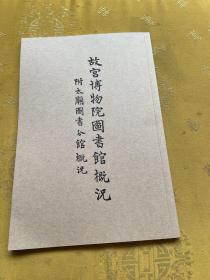 故宮博物院圖書館概況
附太廟圖書分館概況